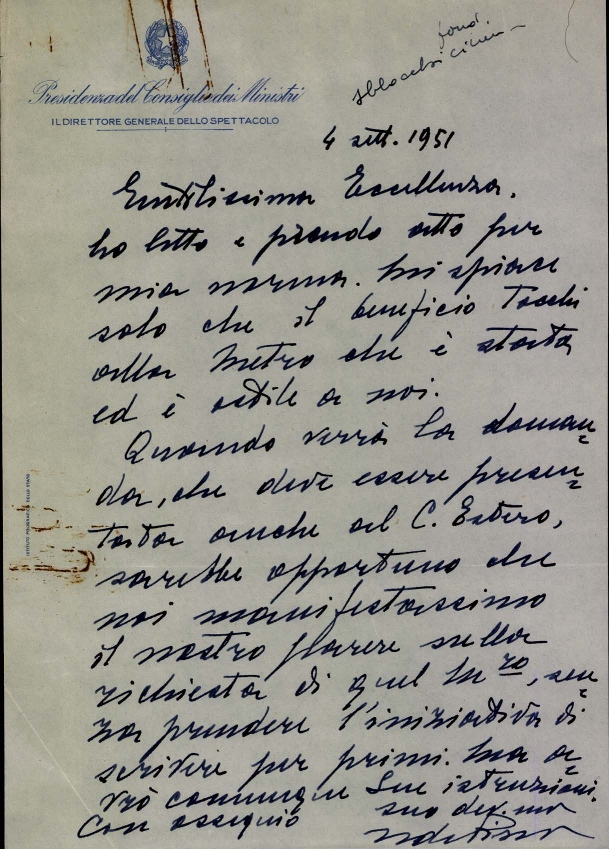 fondi
sblocchi cinem
Presidenza del Consiglio dei Ministri
IL DIRETTORE GENERALE DELLO SPETTACOLO
4 sett. 1951
Gentilissima Eccellenza,
ho letto e prendo atto per
mia norma. Mi spiace
solo che il beneficio tocchi
alla Metro che è stata
ed è ostile a noi.
Quando verrà la doman=
da, che deve essere presen=
tata anche al C. Estero,
sarebbe opportuno che
noi manifestassimo
il nostro parere sulla
richiesta di quel Mro, sen=
za prendere l'iniziativa di
scrivere per primi. Ma a=
vrò comunque Sue istruzioni.
Con ossequio
suo dev.mo
ISTITUTO POLIGRAFICO DELLO STATO